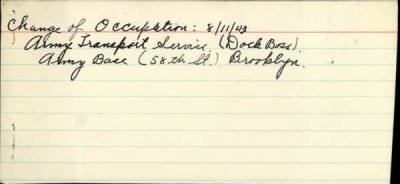 Change of Occupation: 8/11/43
Army Transport Service. (Dock Boss).
Army Base (58th St.) Brooklyn.